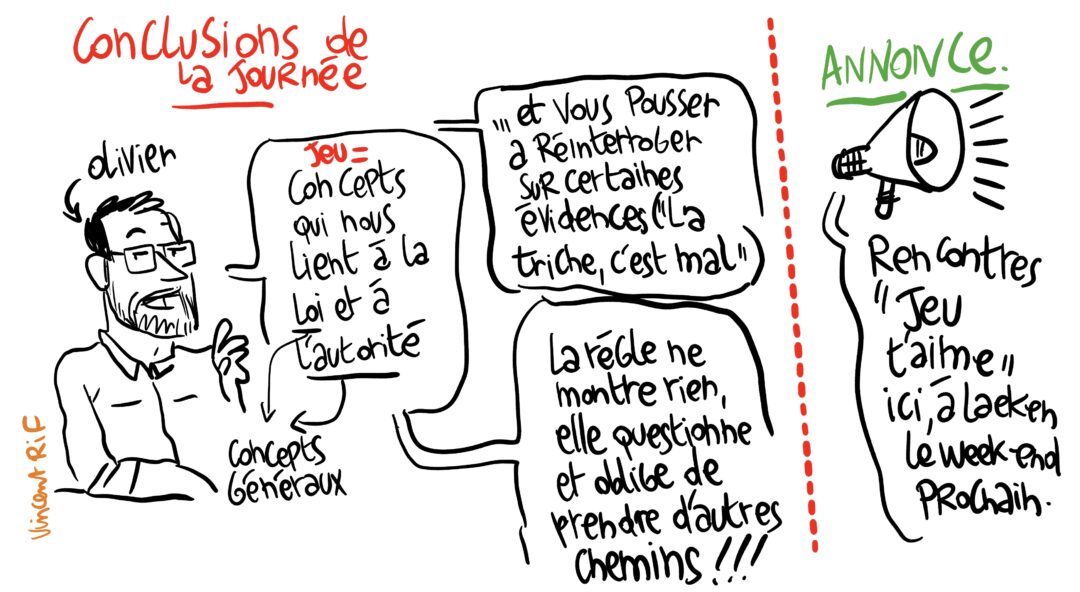 Conclusions de
la journée
olivier
Jeu =
Concepts
qui nous
lient à la
Loi et à
l'autorité
Concepts
Généraux
... et vous pousser
a Réinterroger
sur certaines
évidences ("La
triche, c'est mal")
La régle ne
montre rien,
elle questionne
et oblige de
prendre d'autres
chemins !!!
Vincent Rif
ANNONCE.
Rencontres
"Jeu
t'aime"
ici, à Laeken
le week-end
prochain.